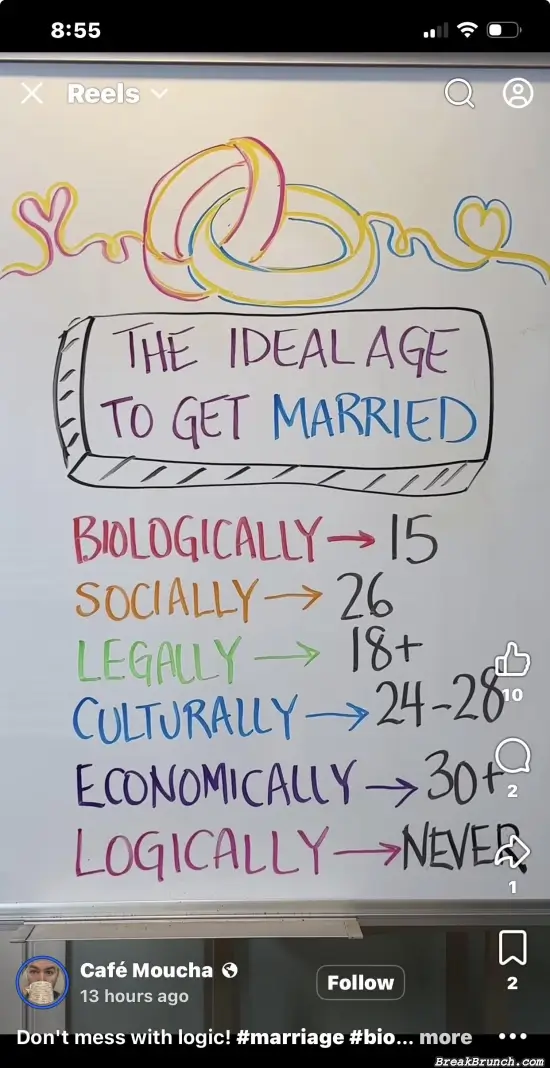 8:55
Reels
THE IDEAL AGE
TO GET MARRIED
BIOLOGICALLY→15
SOCIALLY→26
LEGALLY→18+
CULTURALLY→24-28
ECONOMICALLY→30+
LOGICALLY→NEVER
10
2
1
2
Café Moucha
Follow
13 hours ago
Don't mess with logic! #marriage #bio... more
BreakBrunch.com